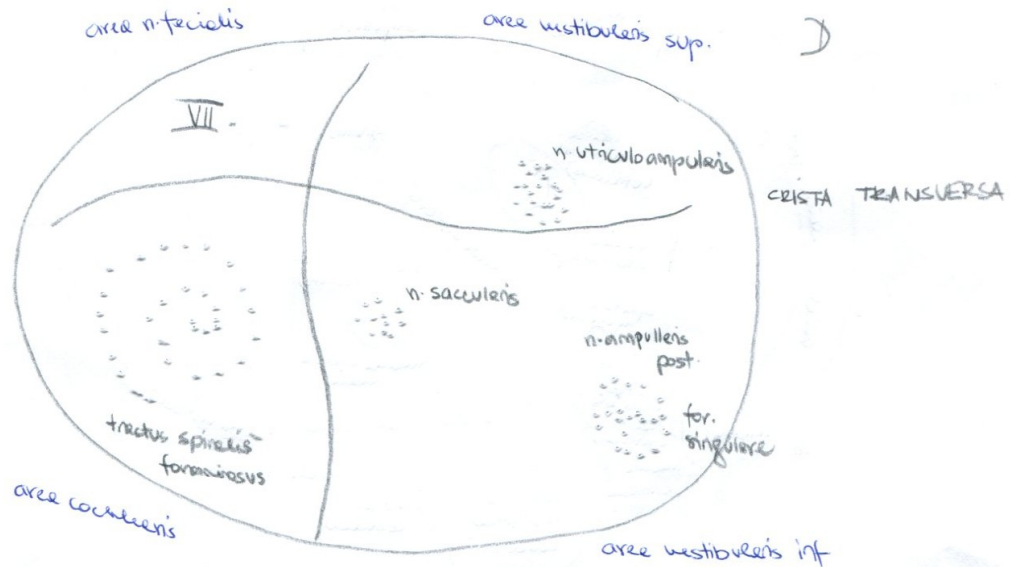 area n. facialis
area vestibularis sup.
D
VII.
n. utriculoampularis
CRISTA TRANSVERSA
n. saccularis
n. ampullaris
post.
for.
singulare
tractus spiralis
foraminosus
area cochlearis
area vestibularis inf